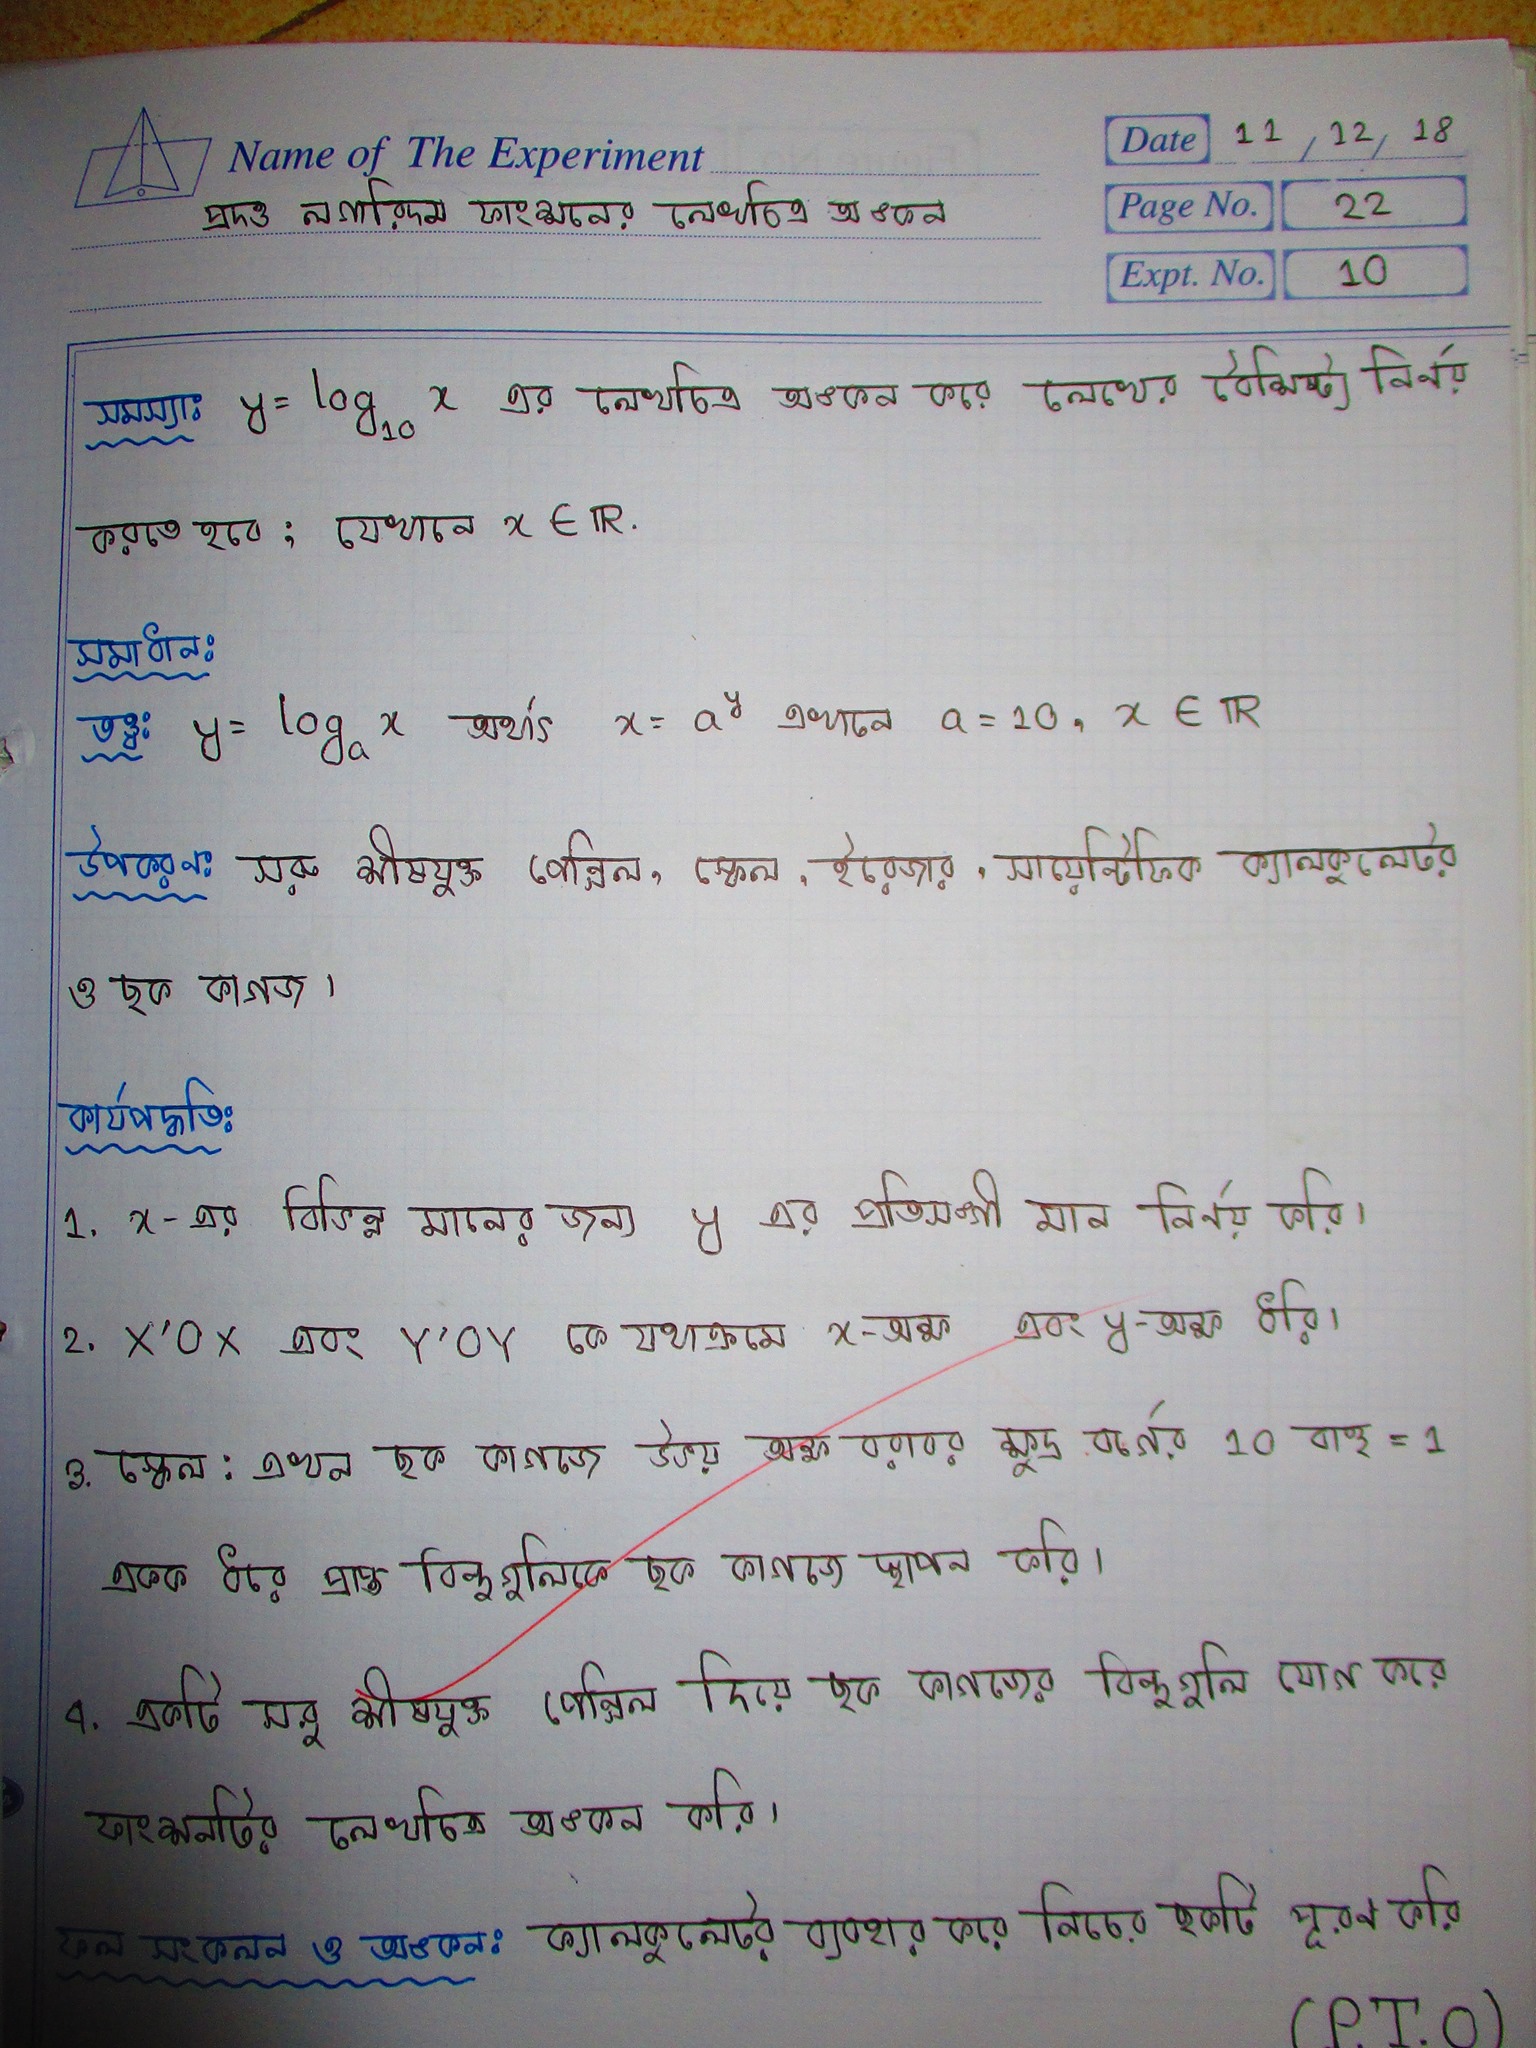 Name of The Experiment
Date 11 / 12 / 18
প্রদত্ত লগারিদম ফাংশনের লেখচিত্র অঙ্কন
Page No. 22
Expt. No. 10
সমস্যাঃ y = log₁₀ x এর লেখচিত্র অঙ্কন করে লেখের বৈশিষ্ট্য নির্ণয়
করতে হবে ; যেখানে x ∈ ℝ.
সমাধানঃ
তত্ত্বঃ y = logₐ x অর্থাৎ x = a^y এখানে a = 10, x ∈ ℝ
উপকরণঃ সরু শীষযুক্ত পেন্সিল, স্কেল, ইরেজার, সায়েন্টিফিক ক্যালকুলেটর
ও ছক কাগজ।
কার্যপদ্ধতিঃ
1. x-এর বিভিন্ন মানের জন্য y এর প্রতিসঙ্গী মান নির্ণয় করি।
2. X'OX এবং Y'OY কে যথাক্রমে x-অক্ষ এবং y-অক্ষ ধরি।
3. স্কেল : এখন ছক কাগজে উভয় অক্ষ বরাবর ক্ষুদ্র বর্গের 10 বাহু = 1
একক ধরে প্রাপ্ত বিন্দুগুলিকে ছক কাগজে স্থাপন করি।
4. একটি সরু শীষযুক্ত পেন্সিল দিয়ে ছক কাগজের বিন্দুগুলি যোগ করে
ফাংশনটির লেখচিত্র অঙ্কন করি।
ফল সংকলন ও অঙ্কনঃ ক্যালকুলেটর ব্যবহার করে নিচের ছকটি পূরণ করি
(P.T.O)